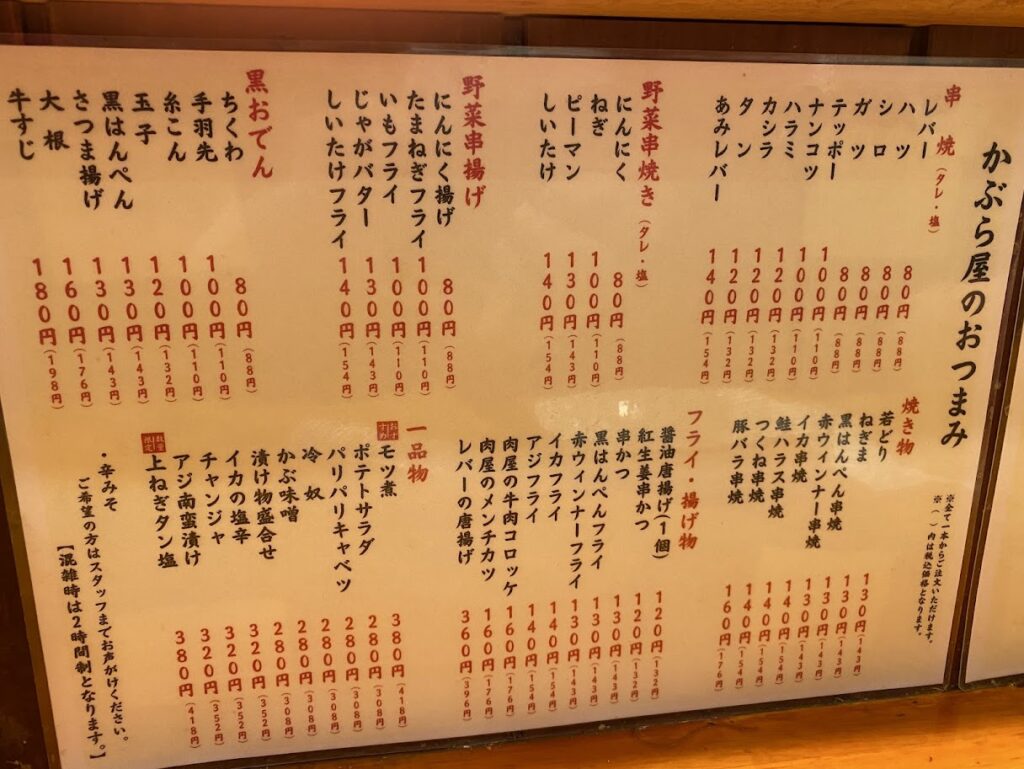 かぶら屋のおつまみ
※全て一本からご注文いただけます。
※（　）内は税込価格となります。
串焼（タレ・塩）
レバー 80円（88円）
ハツ 80円（88円）
シロ 80円（88円）
ガツ 80円（88円）
テッポー 100円（110円）
ナンコツ 100円（110円）
ハラミ 120円（132円）
カシラ 120円（132円）
タン 120円（132円）
あみレバー 140円（154円）
野菜串焼き（タレ・塩）
にんにく 80円（88円）
ねぎ 100円（110円）
ピーマン 130円（143円）
しいたけ 140円（154円）
野菜串揚げ
にんにく揚げ 80円（88円）
たまねぎフライ 100円（110円）
いもフライ 100円（110円）
じゃがバター 130円（143円）
しいたけフライ 140円（154円）
黒おでん
ちくわ 80円（88円）
手羽先 100円（110円）
糸こん 100円（110円）
玉子 120円（132円）
黒はんぺん 130円（143円）
さつま揚げ 130円（143円）
大根 160円（176円）
牛すじ 180円（198円）
焼き物
若どり 130円（143円）
ねぎま 130円（143円）
黒はんぺん串焼 130円（143円）
赤ウインナー串焼 130円（143円）
イカ串焼 140円（154円）
鮭ハラス串焼 140円（154円）
つくね串焼 140円（154円）
豚バラ串焼 160円（176円）
フライ・揚げ物
醤油唐揚げ(1個) 120円（132円）
紅生姜串かつ 120円（132円）
串かつ 130円（143円）
黒はんぺんフライ 130円（143円）
赤ウィンナーフライ 130円（143円）
イカフライ 140円（154円）
アジフライ 140円（154円）
肉屋の牛肉コロッケ 160円（176円）
肉屋のメンチカツ 160円（176円）
レバーの唐揚げ 360円（396円）
一品物
おすすめ モツ煮 380円（418円）
ポテトサラダ 280円（308円）
パリパリキャベツ 280円（308円）
冷奴 280円（308円）
かぶ味噌 280円（308円）
漬け物盛合せ 280円（308円）
イカの塩辛 320円（352円）
チャンジャ 320円（352円）
アジ南蛮漬け 320円（352円）
数量限定 上ねぎタン塩 380円（418円）
・辛みそ
ご希望の方はスタッフまでお声がけください。
【混雑時は２時間制となります。】